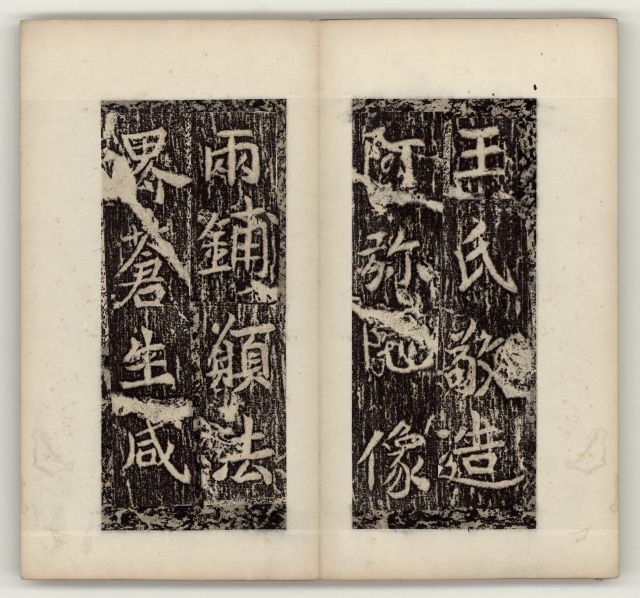 王氏敬造
阿弥陁像
兩鋪願法
界蒼生咸